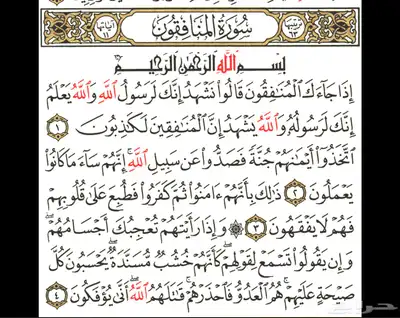 ترتيبها ٦٣ سُورَةُ المُنَافِقُون آياتها ١١
بِسْمِ ٱللَّهِ ٱلرَّحْمَٰنِ ٱلرَّحِيمِ
إِذَا جَآءَكَ ٱلْمُنَٰفِقُونَ قَالُوا۟ نَشْهَدُ إِنَّكَ لَرَسُولُ ٱللَّهِ وَٱللَّهُ يَعْلَمُ
إِنَّكَ لَرَسُولُهُۥ وَٱللَّهُ يَشْهَدُ إِنَّ ٱلْمُنَٰفِقِينَ لَكَٰذِبُونَ ١
ٱتَّخَذُوٓا۟ أَيْمَٰنَهُمْ جُنَّةً فَصَدُّوا۟ عَن سَبِيلِ ٱللَّهِ ۚ إِنَّهُمْ سَآءَ مَا كَانُوا۟
يَعْمَلُونَ ٢ ذَٰلِكَ بِأَنَّهُمْ ءَامَنُوا۟ ثُمَّ كَفَرُوا۟ فَطُبِعَ عَلَىٰ قُلُوبِهِمْ
فَهُمْ لَا يَفْقَهُونَ ٣ ۞ وَإِذَا رَأَيْتَهُمْ تُعْجِبُكَ أَجْسَامُهُمْ ۖ
وَإِن يَقُولُوا۟ تَسْمَعْ لِقَوْلِهِمْ ۖ كَأَنَّهُمْ خُشُبٌ مُّسَنَّدَةٌ ۖ يَحْسَبُونَ كُلَّ
صَيْحَةٍ عَلَيْهِمْ ۚ هُمُ ٱلْعَدُوُّ فَٱحْذَرْهُمْ ۚ قَٰتَلَهُمُ ٱللَّهُ ۖ أَنَّىٰ يُؤْفَكُونَ ٤
حراج